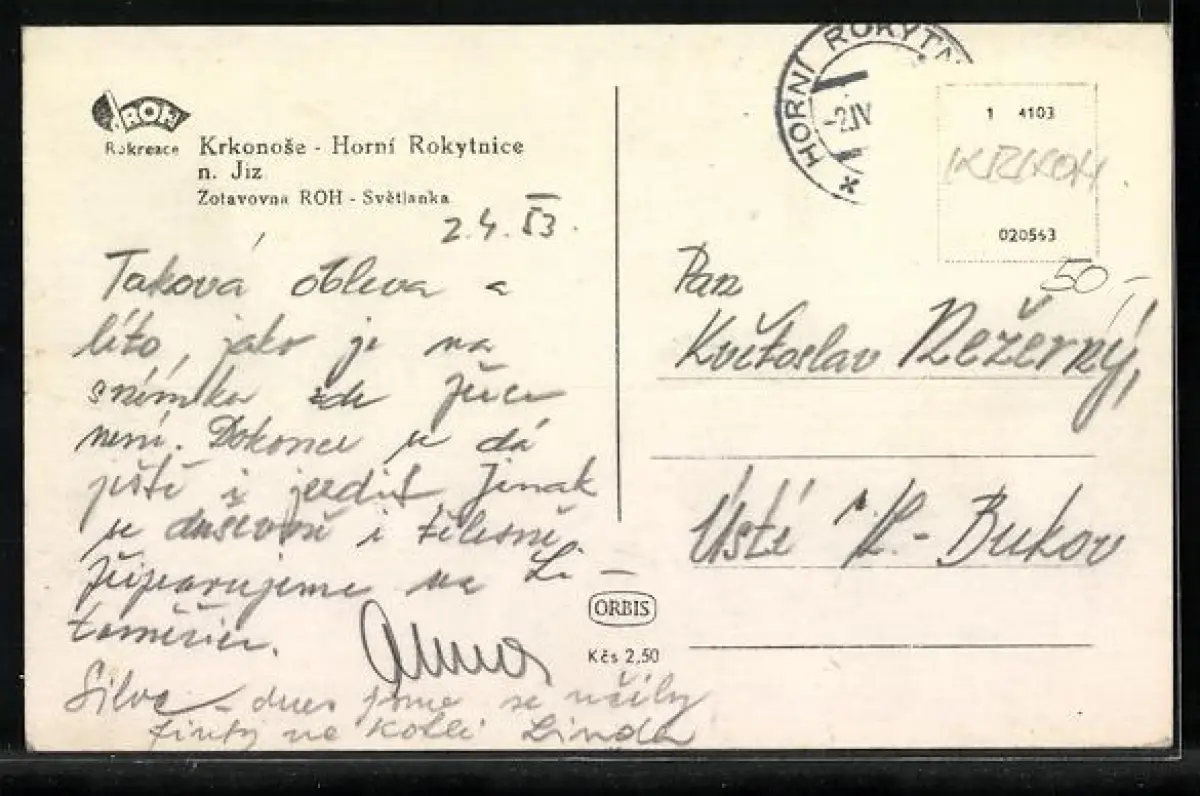 ROH
Rekreace
Krkonoše - Horní Rokytnice
n. Jiz
Zotavovna ROH - Světlanka
2.4.53.
Taková obleva a
léto, jako je na
snímku zde přece
není. Dokonce se dá
ještě i jezdit Jinak
se duševně i tělesně
připravujeme na Li-
toměřice.
Silva - dnes jsme se učily
finty na kolli Linda
ORBIS
Kčs 2,50
* HORNÍ ROKYTN
-2.IV
1 4103
020543
50,-
Pan
Květoslav Nežerný,
Ústí n/L.- Bukov